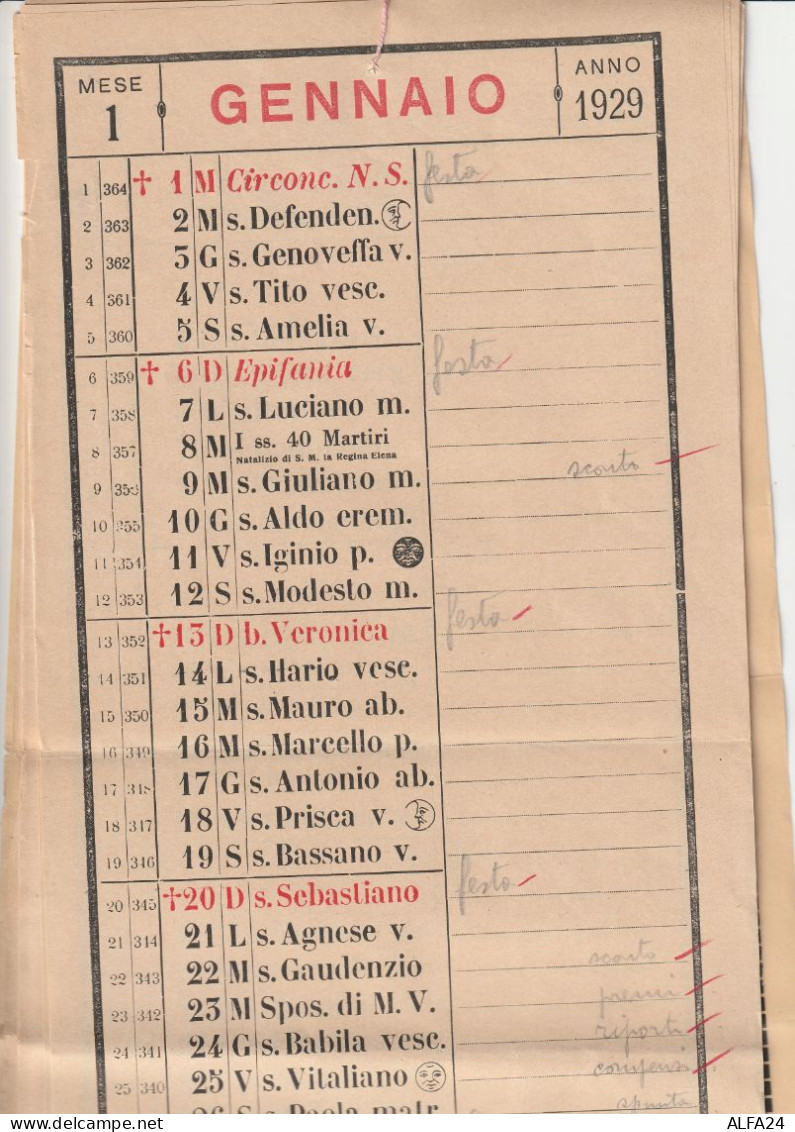 MESE
1
GENNAIO
ANNO
1929
1 364 † 1 M Circonc. N. S. festa
2 363 2 M s. Defenden.
3 362 3 G s. Genoveffa v.
4 361 4 V s. Tito vesc.
5 360 5 S s. Amelia v.
6 359 † 6 D Epifania festa
7 358 7 L s. Luciano m.
8 357 8 M I ss. 40 Martiri
Natalizio di S. M. la Regina Elena
9 356 9 M s. Giuliano m. sconto
10 355 10 G s. Aldo erem.
11 354 11 V s. Iginio p.
12 353 12 S s. Modesto m.
13 352 † 13 D b. Veronica festa
14 351 14 L s. Ilario vesc.
15 350 15 M s. Mauro ab.
16 349 16 M s. Marcello p.
17 348 17 G s. Antonio ab.
18 347 18 V s. Prisca v.
19 346 19 S s. Bassano v.
20 345 † 20 D s. Sebastiano festa
21 344 21 L s. Agnese v.
22 343 22 M s. Gaudenzio sconto
23 342 23 M Spos. di M. V. premi
24 341 24 G s. Babila vesc. riporti
25 340 25 V s. Vitaliano compensi
26 S s. Paola matr. spunta
delcampe.net
ALFA24